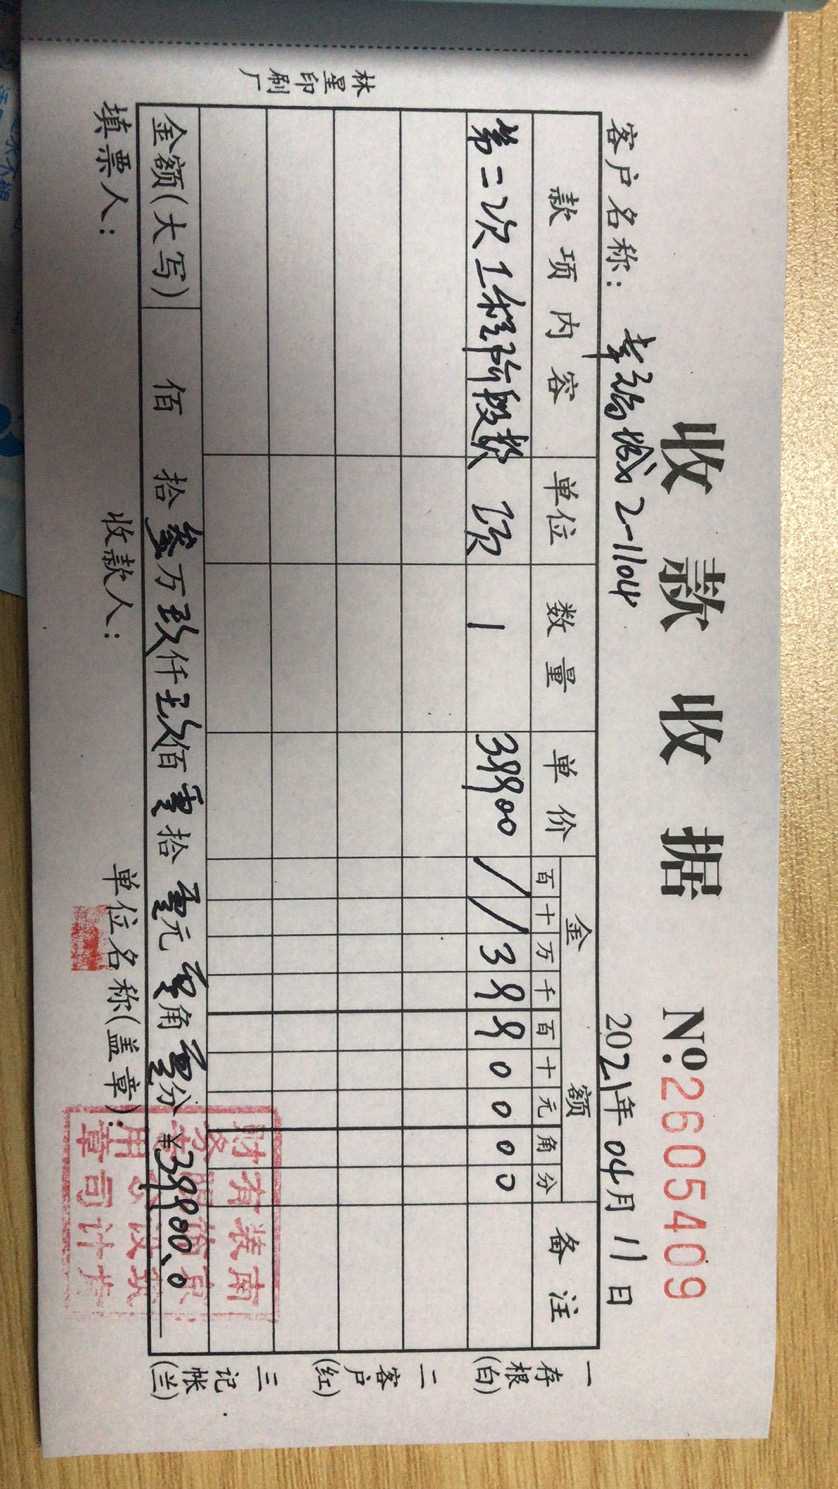 收款收据
No.2605409
客户名称：幸福城2-1104
2021年04月11日
款项内容 单位 数量 单价 金额 备注
百 十 万 千 百 十 元 角 分
第二次工程阶段款 次 1 39900 / / 3 9 9 0 0 0 0
金额(大写) 佰 拾叁万玖仟玖佰零拾零元零角零分 ¥39900.0
填票人： 收款人： 单位名称(盖章)：
一存根(白) 二客户(红) 三记帐(兰)
林星印刷厂